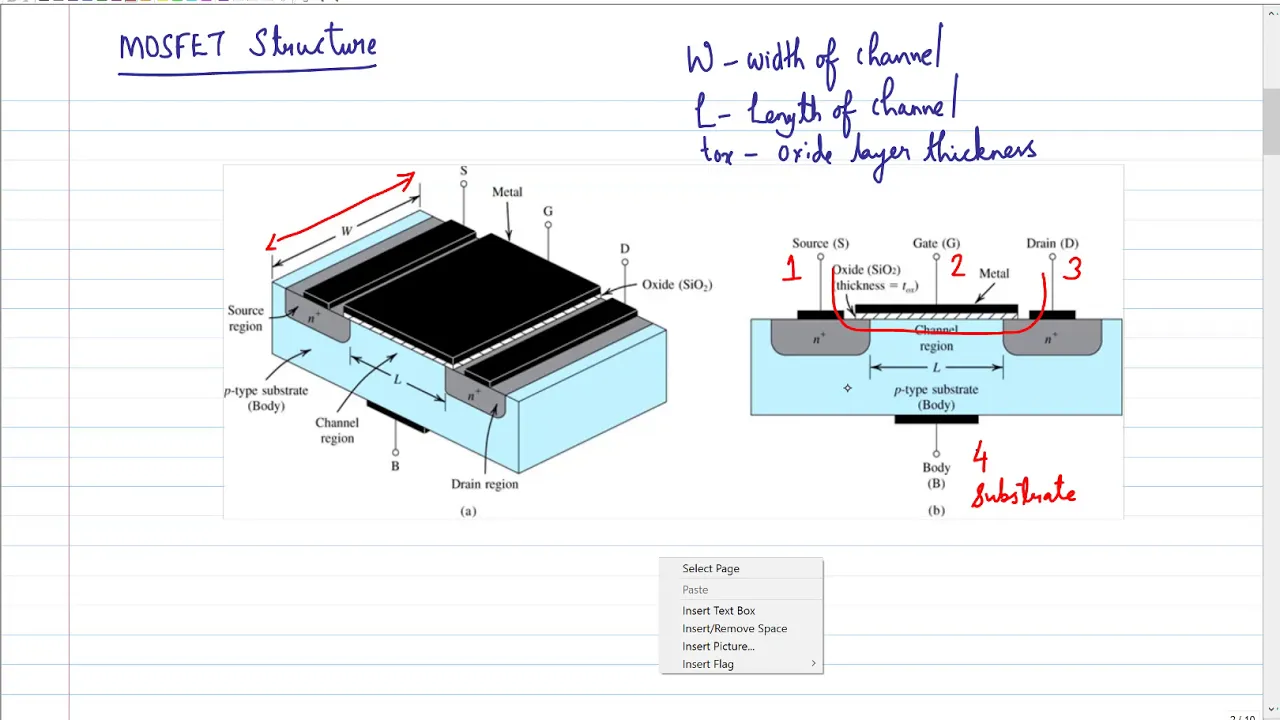 MOSFET Structure
W - width of channel
L - Length of channel
tox - oxide layer thickness
S
Metal
G
D
W
Oxide (SiO2)
Source
region
n+
p-type substrate
(Body)
L
n+
Channel
region
B
Drain region
(a)
Source (S)
Gate (G)
Drain (D)
1
2
3
Oxide (SiO2)
thickness = tox)
Metal
n+
Channel
region
n+
L
p-type substrate
(Body)
Body
(B)
4
Substrate
(b)
Select Page
Paste
Insert Text Box
Insert/Remove Space
Insert Picture...
Insert Flag